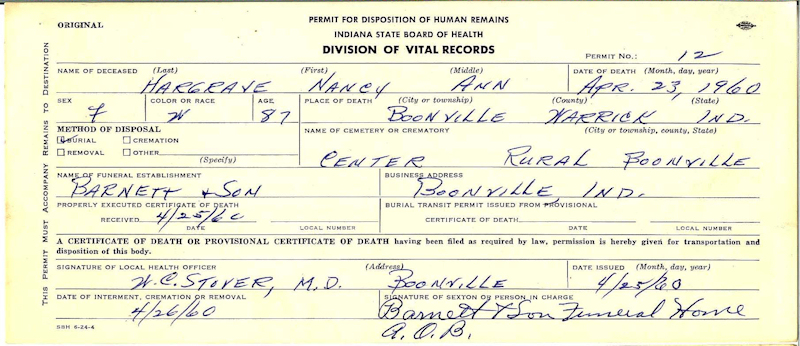 ORIGINAL
PERMIT FOR DISPOSITION OF HUMAN REMAINS
INDIANA STATE BOARD OF HEALTH
DIVISION OF VITAL RECORDS
PERMIT NO.: 12
THIS PERMIT MUST ACCOMPANY REMAINS TO DESTINATION
NAME OF DECEASED (Last) (First) (Middle) DATE OF DEATH (Month, day, year)
HARGRAVE NANCY ANN APR. 23, 1960
SEX COLOR OR RACE AGE PLACE OF DEATH (City or township) (County) (State)
F W 87 BOONVILLE WARRICK IND.
METHOD OF DISPOSAL NAME OF CEMETERY OR CREMATORY (City or township, county, State)
BURIAL CREMATION
REMOVAL OTHER (Specify)
CENTER RURAL BOONVILLE
NAME OF FUNERAL ESTABLISHMENT BUSINESS ADDRESS
BARNETT & SON BOONVILLE, IND.
PROPERLY EXECUTED CERTIFICATE OF DEATH BURIAL TRANSIT PERMIT ISSUED FROM PROVISIONAL
RECEIVED 4/25/60 CERTIFICATE OF DEATH
DATE LOCAL NUMBER DATE LOCAL NUMBER
A CERTIFICATE OF DEATH OR PROVISIONAL CERTIFICATE OF DEATH having been filed as required by law, permission is hereby given for transportation and
disposition of this body.
SIGNATURE OF LOCAL HEALTH OFFICER (Address) DATE ISSUED (Month, day, year)
W.C. STOVER, M.D. BOONVILLE 4/25/60
DATE OF INTERMENT, CREMATION OR REMOVAL SIGNATURE OF SEXTON OR PERSON IN CHARGE
4/26/60 Barnett & Son Funeral Home
A.O.B.
SBH 6-24-4